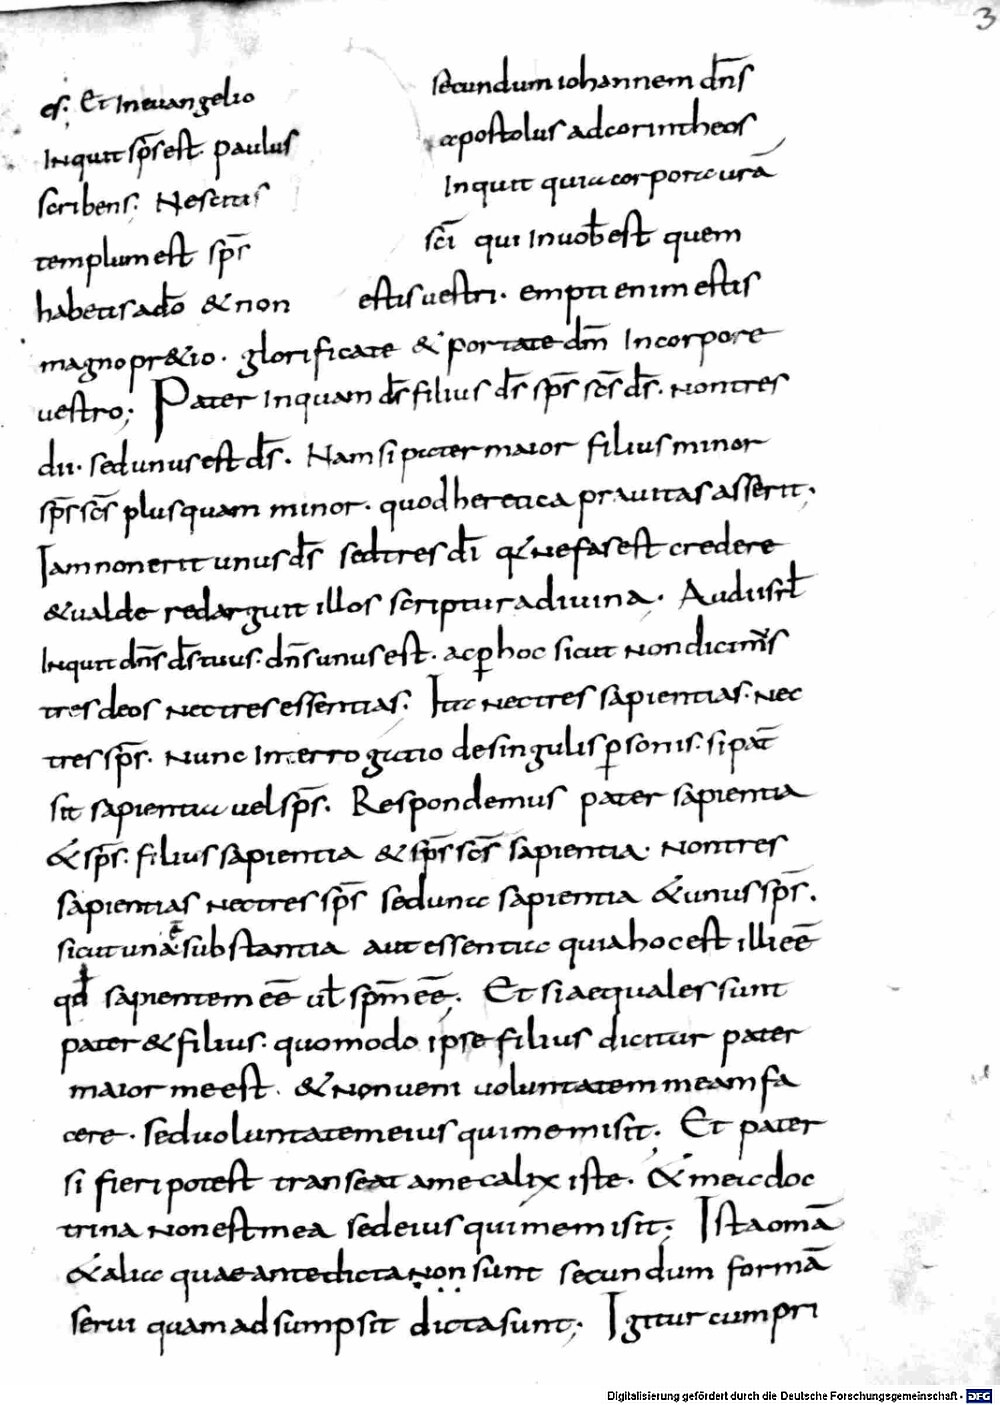 3
es. Et in euangelio secundum iohannem dn̄s
inquit sp̄s est. paulus apostolus ad corintheos
scribens. Nescitis inquit quia corpora urā
templum est sp̄s sc̄i qui in uob̄ est quem
habetis a do̅ & non estis uestri. empti enim estis
magno pr&io. glorificate & portate dm̄ in corpore
uestro; Pater inquam ds̄ filius ds̄ sp̄s sc̄s ds̄. non tres
dii. sed unus est ds̄. Nam si pater maior filius minor
sp̄s sc̄s plusquam minor. quod heretica prauitas asserit.
Iam non erit unus ds̄ sed tres di̅ q̇d nefas est credere
& ualde redarguit illos scriptura diuina. Audi isrl̄
inquit dn̄s ds̄ tuus. dn̄s unus est. ac p̱ hoc sicut non dicim̄s
tres deos nec tres essentias. Ita nec tres sapientias. nec
tres sp̄s. Nunc interrogatio de singulis p̱sonis. si pat̄
sit sapientia uel sp̄s. Respondemus pater sapientia
& sp̄s. filius sapientia & sp̄s sc̄s sapientia. non tres
sapientias nec tres sp̄s sed una sapientia & unus sp̄s.
sicut una ē substantia aut essentia quia hoc est illi eē
qd̄ sapientem eē ul̄ spm̄ eē; Et si aequales sunt
pater & filius. quomodo ipse filius dicitur pater
maior me est. & non ueni uoluntatem meam fa
cere. sed uoluntatem eius qui me misit; Et pater
si fieri potest transeat a me calix iste. & mea doc
trina non est mea sed eius qui me misit; Ista omā
& alia quae ante dicta non sunt secundum formā
serui quam adsumpsit dicta sunt; Igitur cum pri
Digitalisierung gefördert durch die Deutsche Forschungsgemeinschaft - DFG